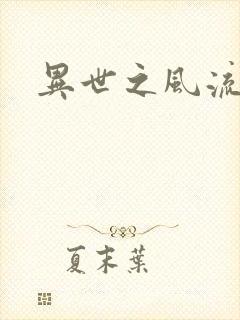 異世之風流
夏末葉